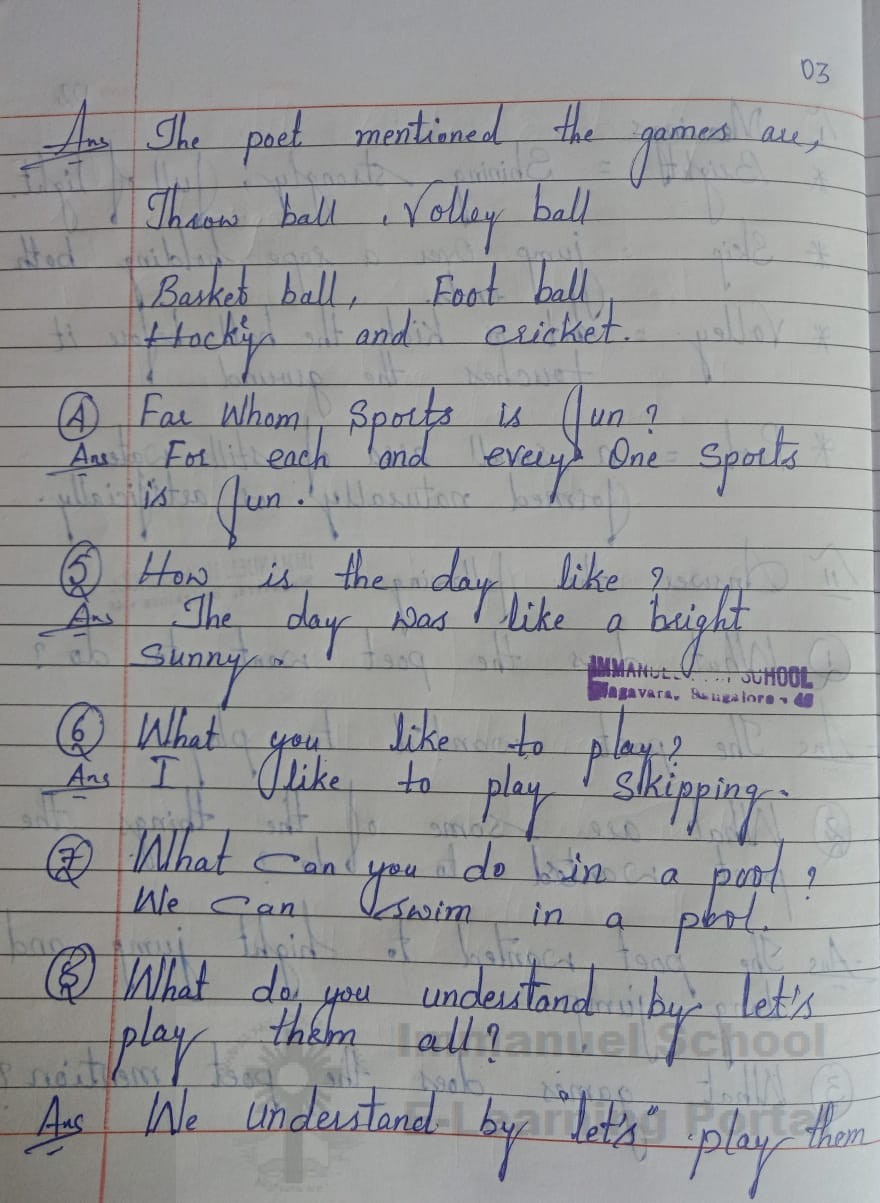 03
Ans The poet mentioned the games are,
Throw ball, Volley ball
Basket ball, Foot ball,
Hockey and cricket.
④ For Whom Sports is fun?
Ans For each and every One Sports
is fun.
⑤ How is the day like?
Ans The day was like a bright
Sunny.
SCHOOL
Nagavara, Bangalore - 45
⑥ What you like to play?
Ans I like to play Skipping.
⑦ What Can you do in a pool?
We Can swim in a pool.
⑧ What do you understand by let's
play them all?
Immanuel School
E-Learning Portal
Ans We understand by "let's" play them